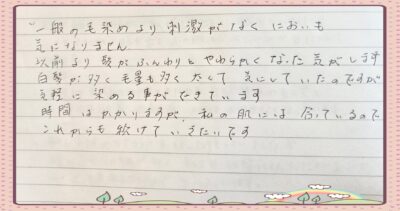 一般の毛染めより刺激がなく においも
気になりません
以前より髪がふんわりと やわらかくなった気がします
白髪が多く毛量も多く 大して気にしていたのですが
気軽に染める事ができています
時間はかかりますが、私の肌には合っているので
これからも続けていきたいです